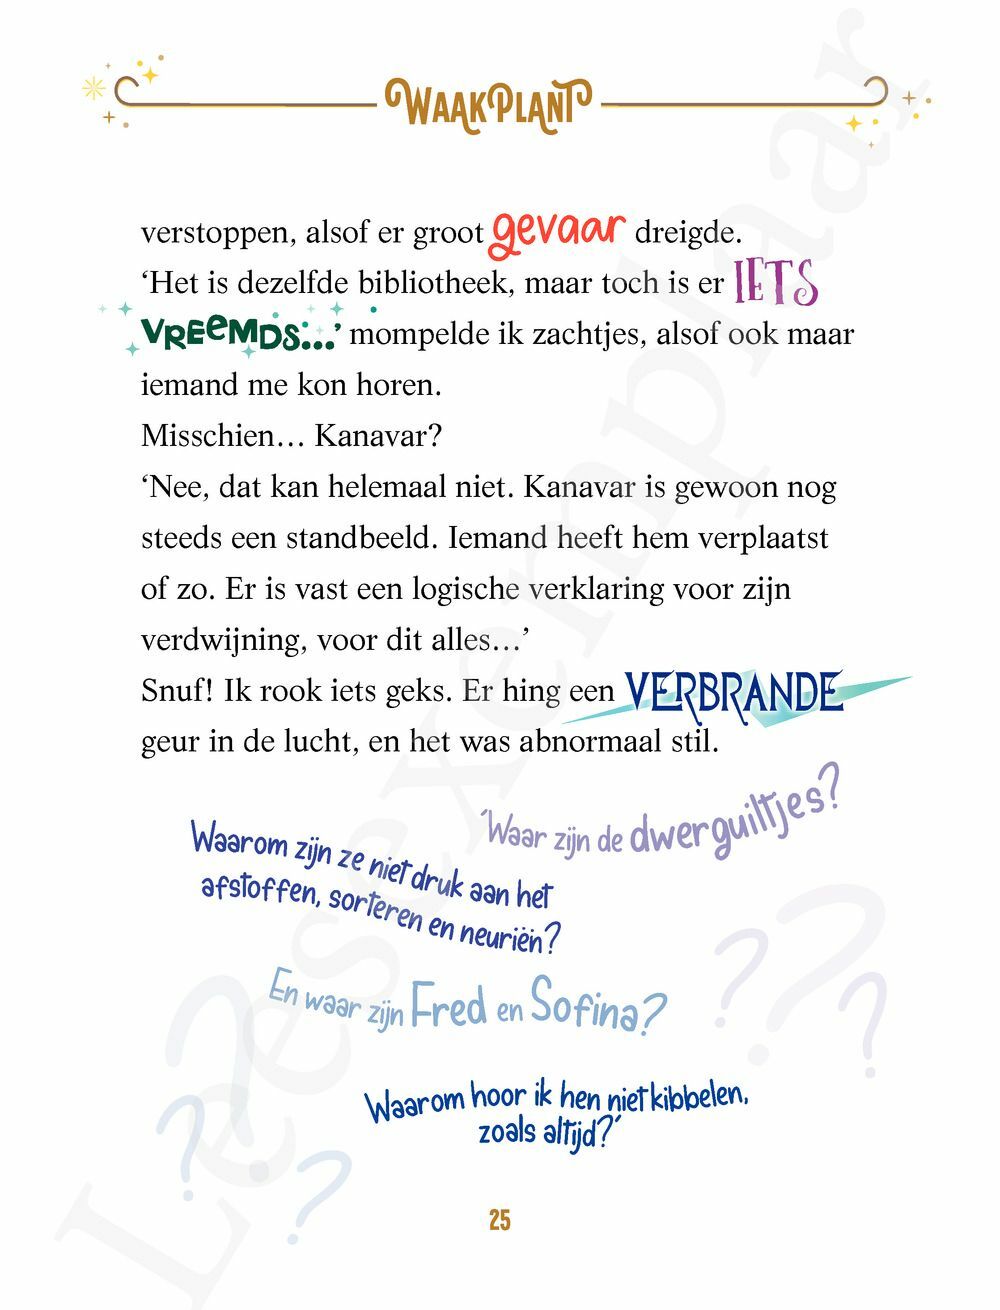 WAAKPLANT
verstoppen, alsof er groot gevaar dreigde.
‘Het is dezelfde bibliotheek, maar toch is er IETS
VREEMDS...’ mompelde ik zachtjes, alsof ook maar
iemand me kon horen.
Misschien… Kanavar?
‘Nee, dat kan helemaal niet. Kanavar is gewoon nog
steeds een standbeeld. Iemand heeft hem verplaatst
of zo. Er is vast een logische verklaring voor zijn
verdwijning, voor dit alles…’
Snuf! Ik rook iets geks. Er hing een VERBRANDE
geur in de lucht, en het was abnormaal stil.
‘Waar zijn de dwerguiltjes?
Waarom zijn ze niet druk aan het
afstoffen, sorteren en neuriën?
En waar zijn Fred en Sofina?
Waarom hoor ik hen niet kibbelen,
zoals altijd?’
25
Leesexemplaar